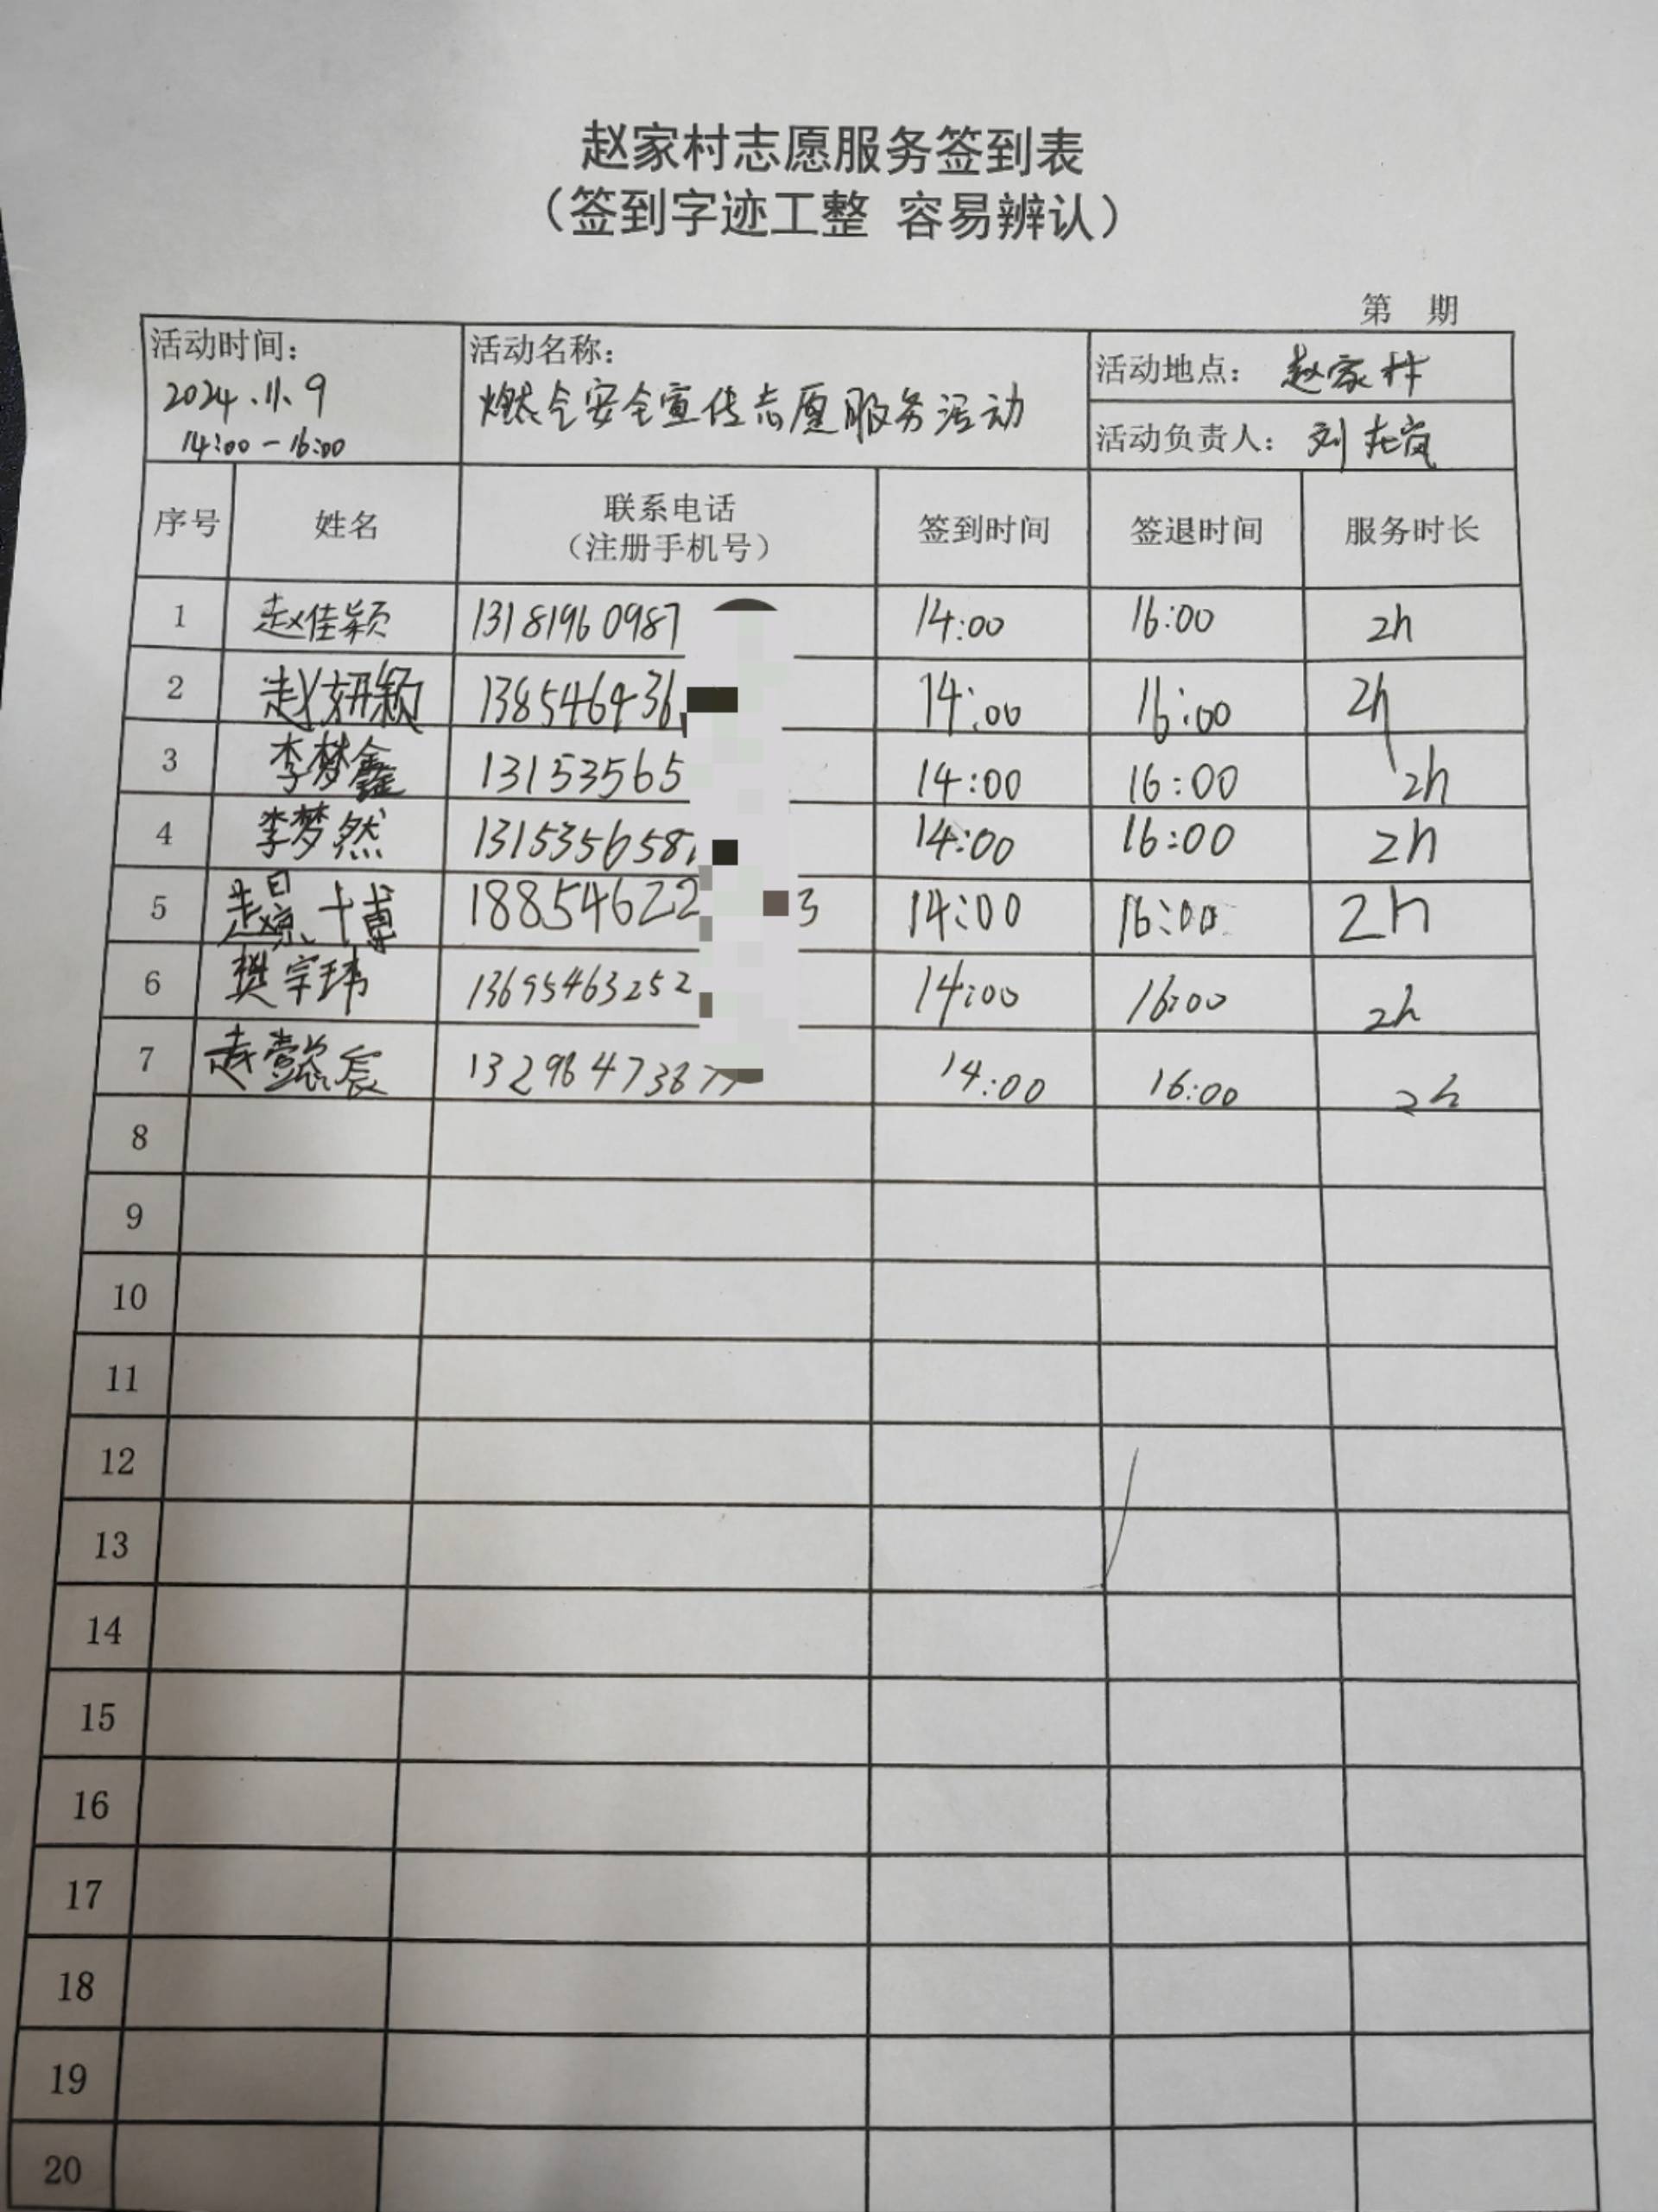 赵家村志愿服务签到表
（签到字迹工整 容易辨认）
第 期
活动时间：
2024.11.9
14:00-16:00
活动名称：
燃全安全宣传志愿服务活动
活动地点：赵家村
活动负责人：刘
序号 姓名 联系电话（注册手机号） 签到时间 签退时间 服务时长
1 赵佳颖 13181960987 14:00 16:00 2h
2 赵妍颖 138546436 14:00 16:00 2h
3 李梦鑫 13153565 14:00 16:00 2h
4 李梦然 131535658 14:00 16:00 2h
5 赵景博 18854622 3 14:00 16:00 2h
6 樊宗玮 13695463252 14:00 16:00 2h
7 赵懿宸 1329847387 14:00 16:00 2h
8
9
10
11
12
13
14
15
16
17
18
19
20